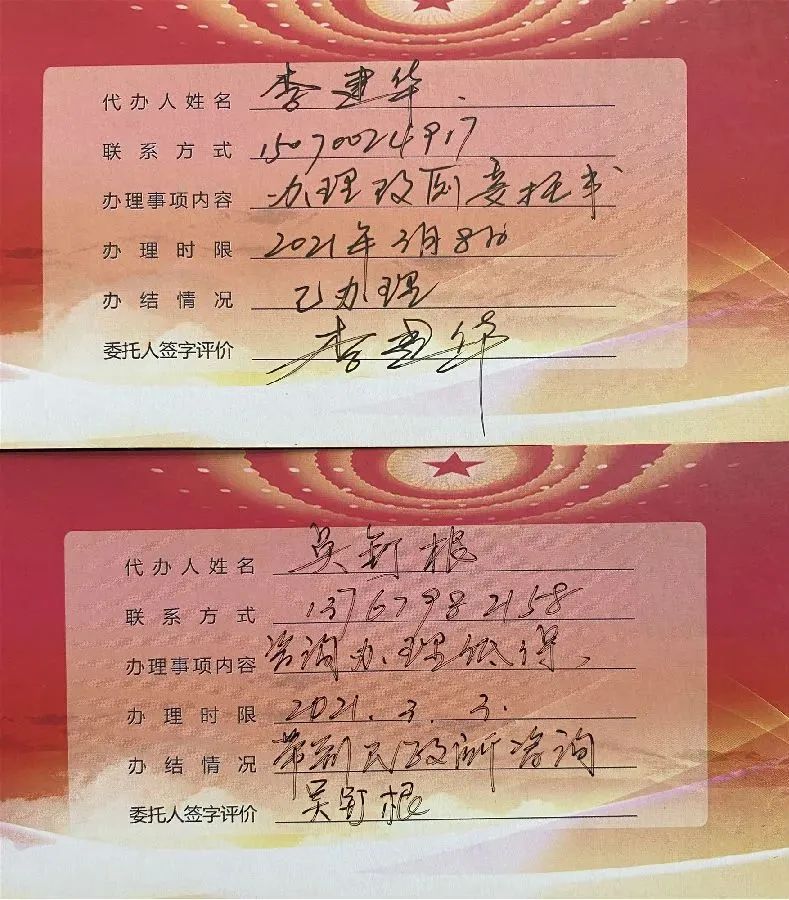 代办人姓名 李建华.
联系方式 15070024917
办理事项内容 办理 委托书
办理时限 2021年3月8日
办结情况 已办理
委托人签字评价 李建华
代办人姓名 吴钉根
联系方式 13767982158
办理事项内容 咨询办理低保、
办理时限 2021.3.3.
办结情况 带到民政所咨询
委托人签字评价 吴钉根